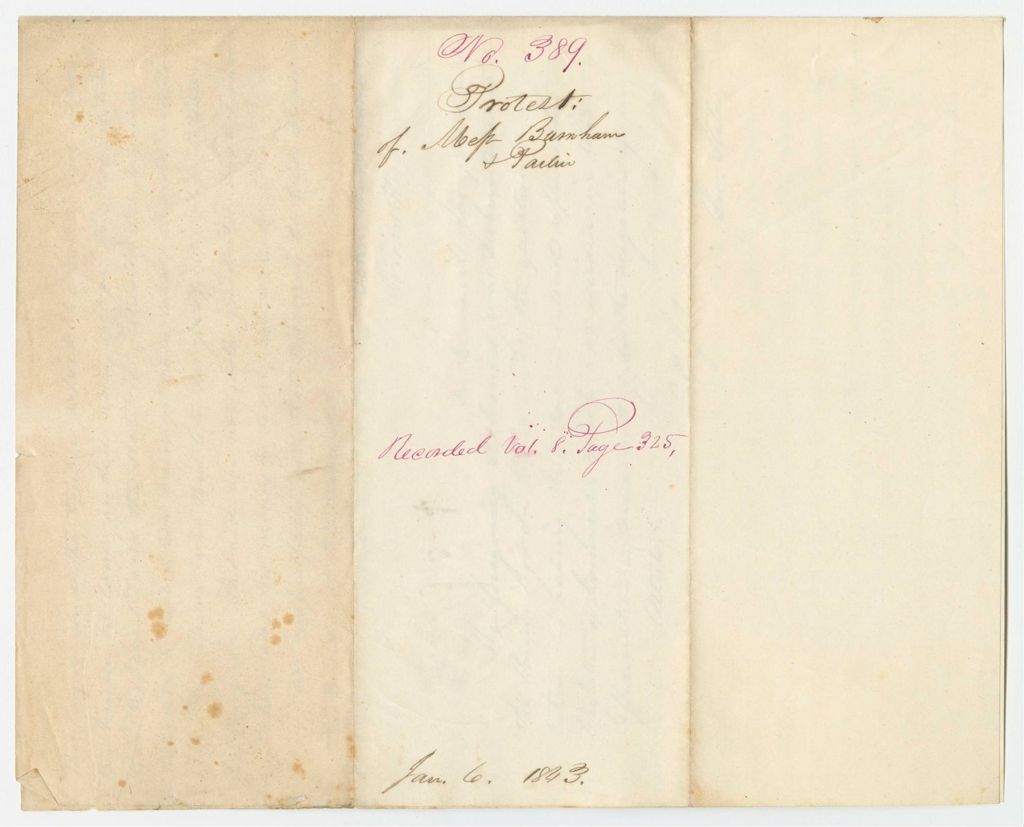 No. 389.
Protest:
of. Mess Burnham
& Parlin
Recorded Vol. 8. Page 325,
Jan. 6. 1843.